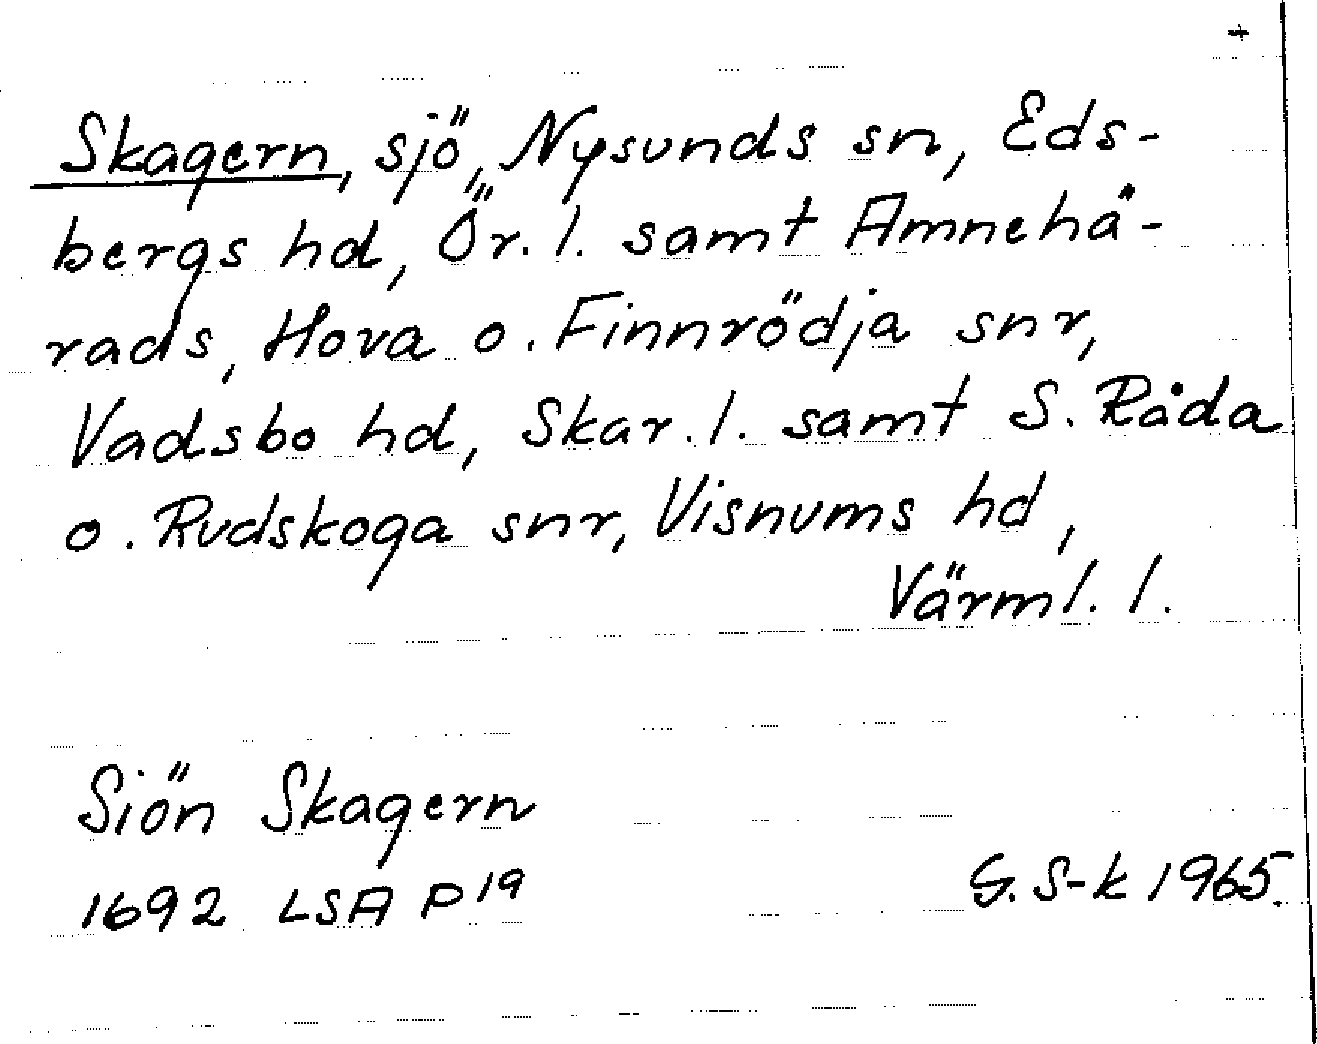 +
Skagern, sjö, Nysunds sn, Eds-
bergs hd, Ör. l. samt Amnehä-
rads, Hova o. Finnrödja snr,
Vadsbo hd, Skar. l. samt S. Råda
o. Rudskoga snr, Visnums hd,
Värml. l.
Siön Skagern
1692 LSA P19
G. S-k 1965.